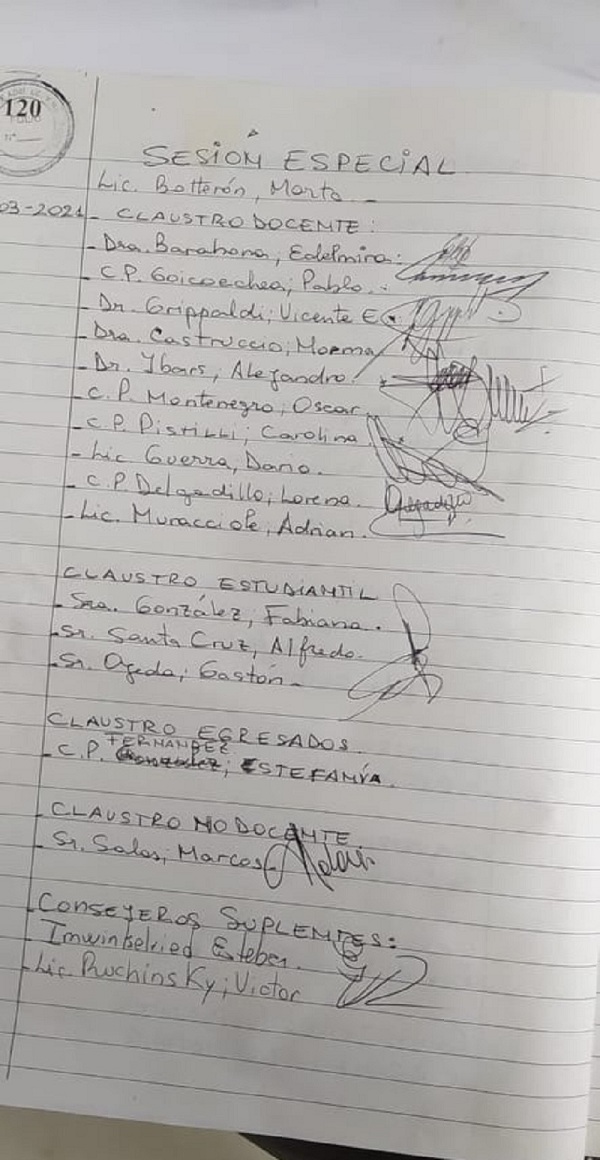 120
FOLIO
N°
SESIÓN ESPECIAL
Lic. Botterón, Marta -
03-2021 - CLAUSTRO DOCENTE:
- Dra. Barahona, Edelmira:
- C.P. Goicoechea; Pablo.:
- Dr. Grippaldi; Vicente E.
- Dra. Castruccio; Moema
- Dr. Ybars, Alejandro.
- C.P. Montenegro; Oscar
- C.P. PISTILLI; Carolina
- Lic Guerra, Dario.
- C.P. Delgadillo; Lorena.
- Lic. Muracciole; Adrian.
CLAUSTRO ESTUDIANTIL
- Sra. González; Fabiana.
- Sr. Santa Cruz, Alfredo.
- Sr. Ojeda; Gastón -
CLAUSTRO EGRESADOS.
FERNANDEZ
- C.P. Gonzalez; ESTEFANÍA.
CLAUSTRO NO DOCENTE.
- Sr. Salas; Marcos
- CONSEJEROS SUPLENTES:
- Imwinkelried Esteban.
- Lic. Ruchinsky; Victor